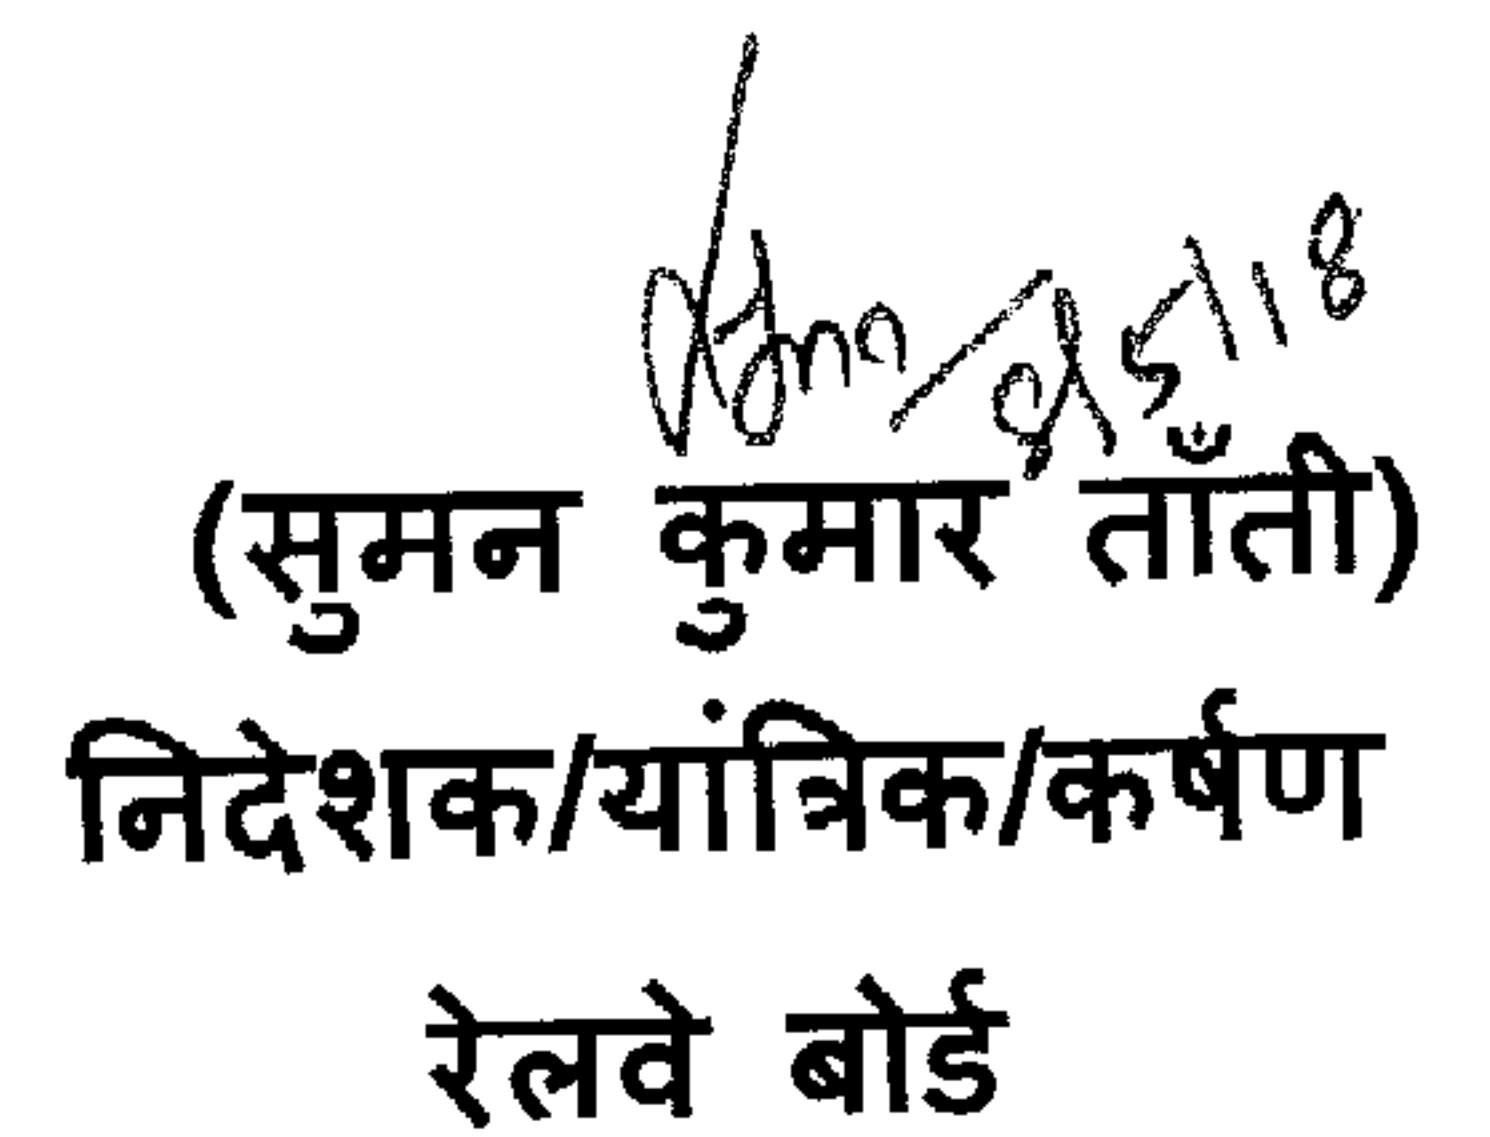 (सुमन कुमार ताँती)
निदेशक/यांत्रिक/कर्षण
रेलवे बोर्ड